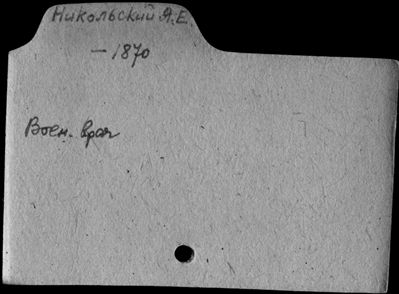 Никольский А.Е.
— 1870
Воен. врач